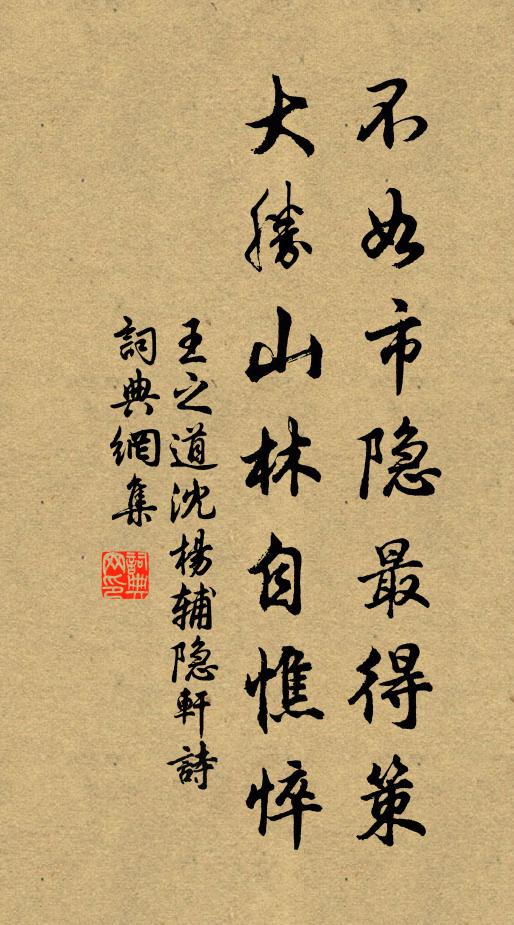 不如市隐最得策
大勝山林自憔悴
王之道沈楊輔隐軒詩
詞典網集
詞典網印